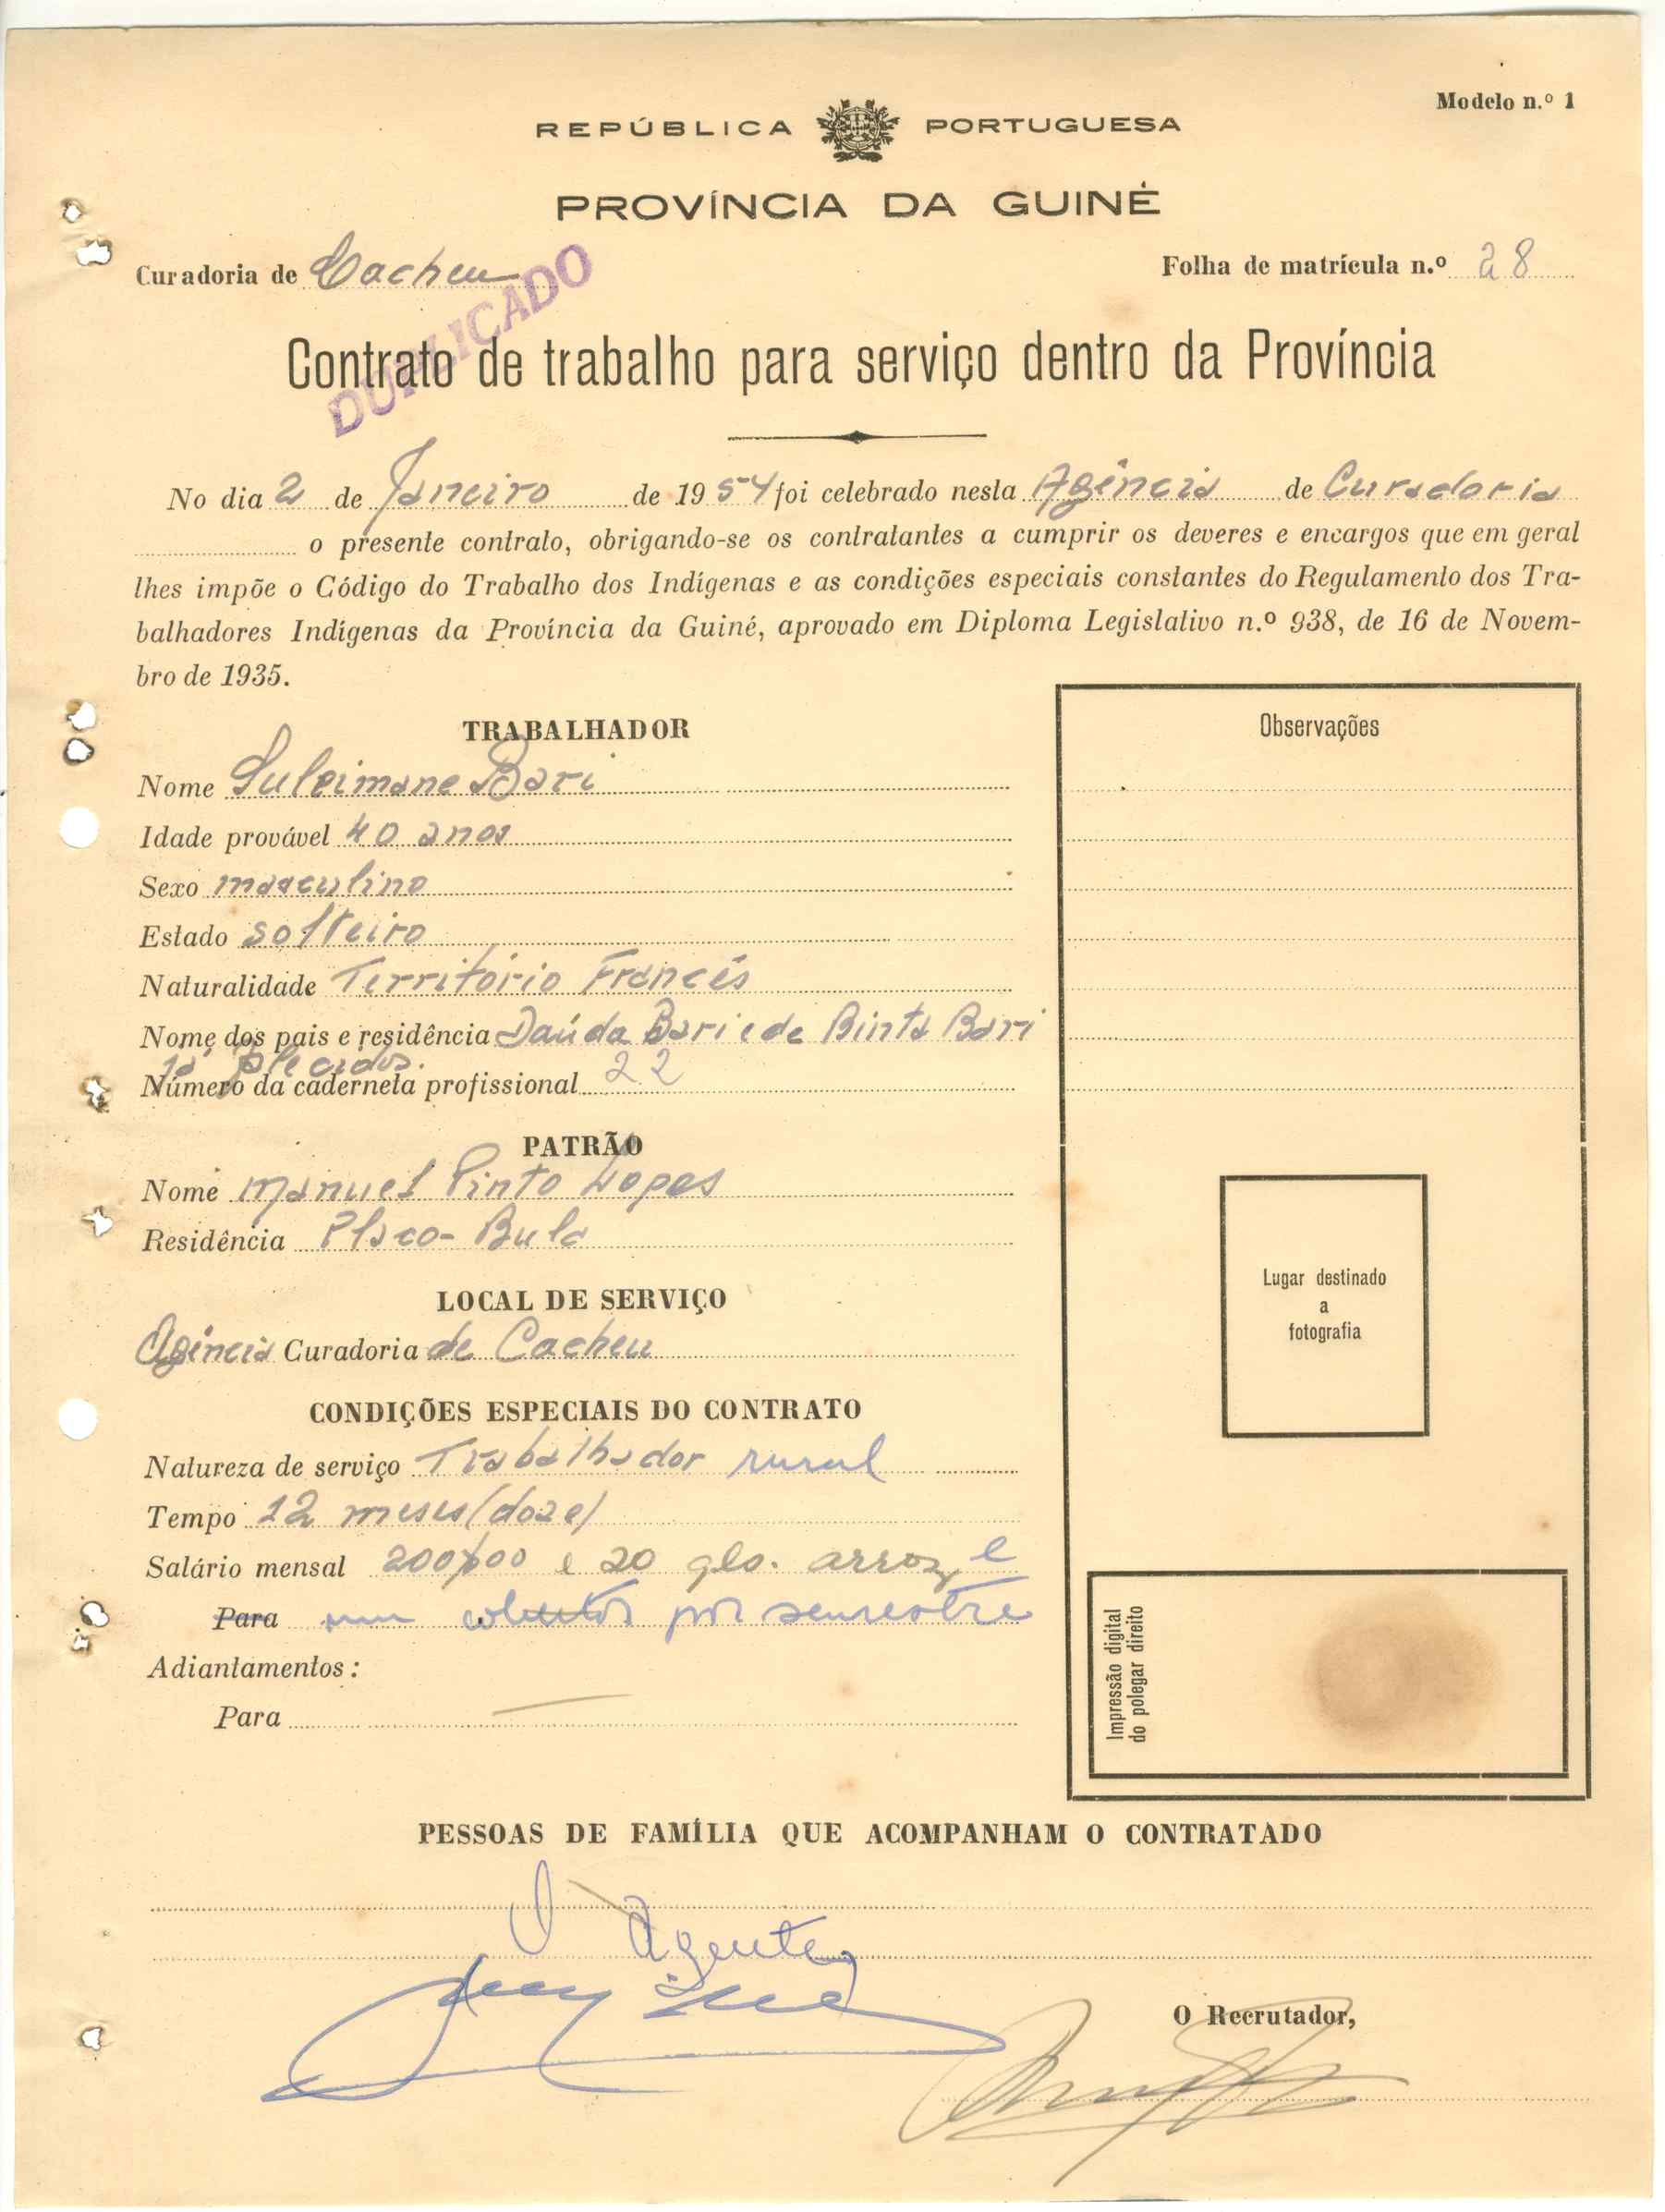 Modelo n.º 1
REPÚBLICA PORTUGUESA
PROVÍNCIA DA GUINÉ
Curadoria de Cacheu
Folha de matrícula n.º 28
DUPLICADO
Contrato de trabalho para serviço dentro da Província
No dia 2 de Janeiro de 1954 foi celebrado nesta Agência de Curadoria
o presente contrato, obrigando-se os contratantes a cumprir os deveres e encargos que em geral
lhes impõe o Código do Trabalho dos Indígenas e as condições especiais constantes do Regulamento dos Tra-
balhadores Indígenas da Província da Guiné, aprovado em Diploma Legislativo n.º 938, de 16 de Novem-
bro de 1935.
TRABALHADOR
Nome Suleimane Bari
Idade provável 40 anos
Sexo masculino
Estado solteiro
Naturalidade Território Francês
Nome dos pais e residência Daúda Bari e de Binta Bari
já falecidos.
Número da caderneta profissional 22
PATRÃO
Nome Manuel Pinto Lopes
Residência Placo-Bula
LOCAL DE SERVIÇO
Agência Curadoria de Cacheu
CONDIÇÕES ESPECIAIS DO CONTRATO
Natureza de serviço Trabalhador rural
Tempo 12 meses (doze)
Salário mensal 200$00 e 20 qls. arroz e
Para um por semestre
Adiantamentos:
Para
Observações
Lugar destinado
a
fotografia
Impressão digital
do polegar direito
PESSOAS DE FAMÍLIA QUE ACOMPANHAM O CONTRATADO
O Agente
O Recrutador,